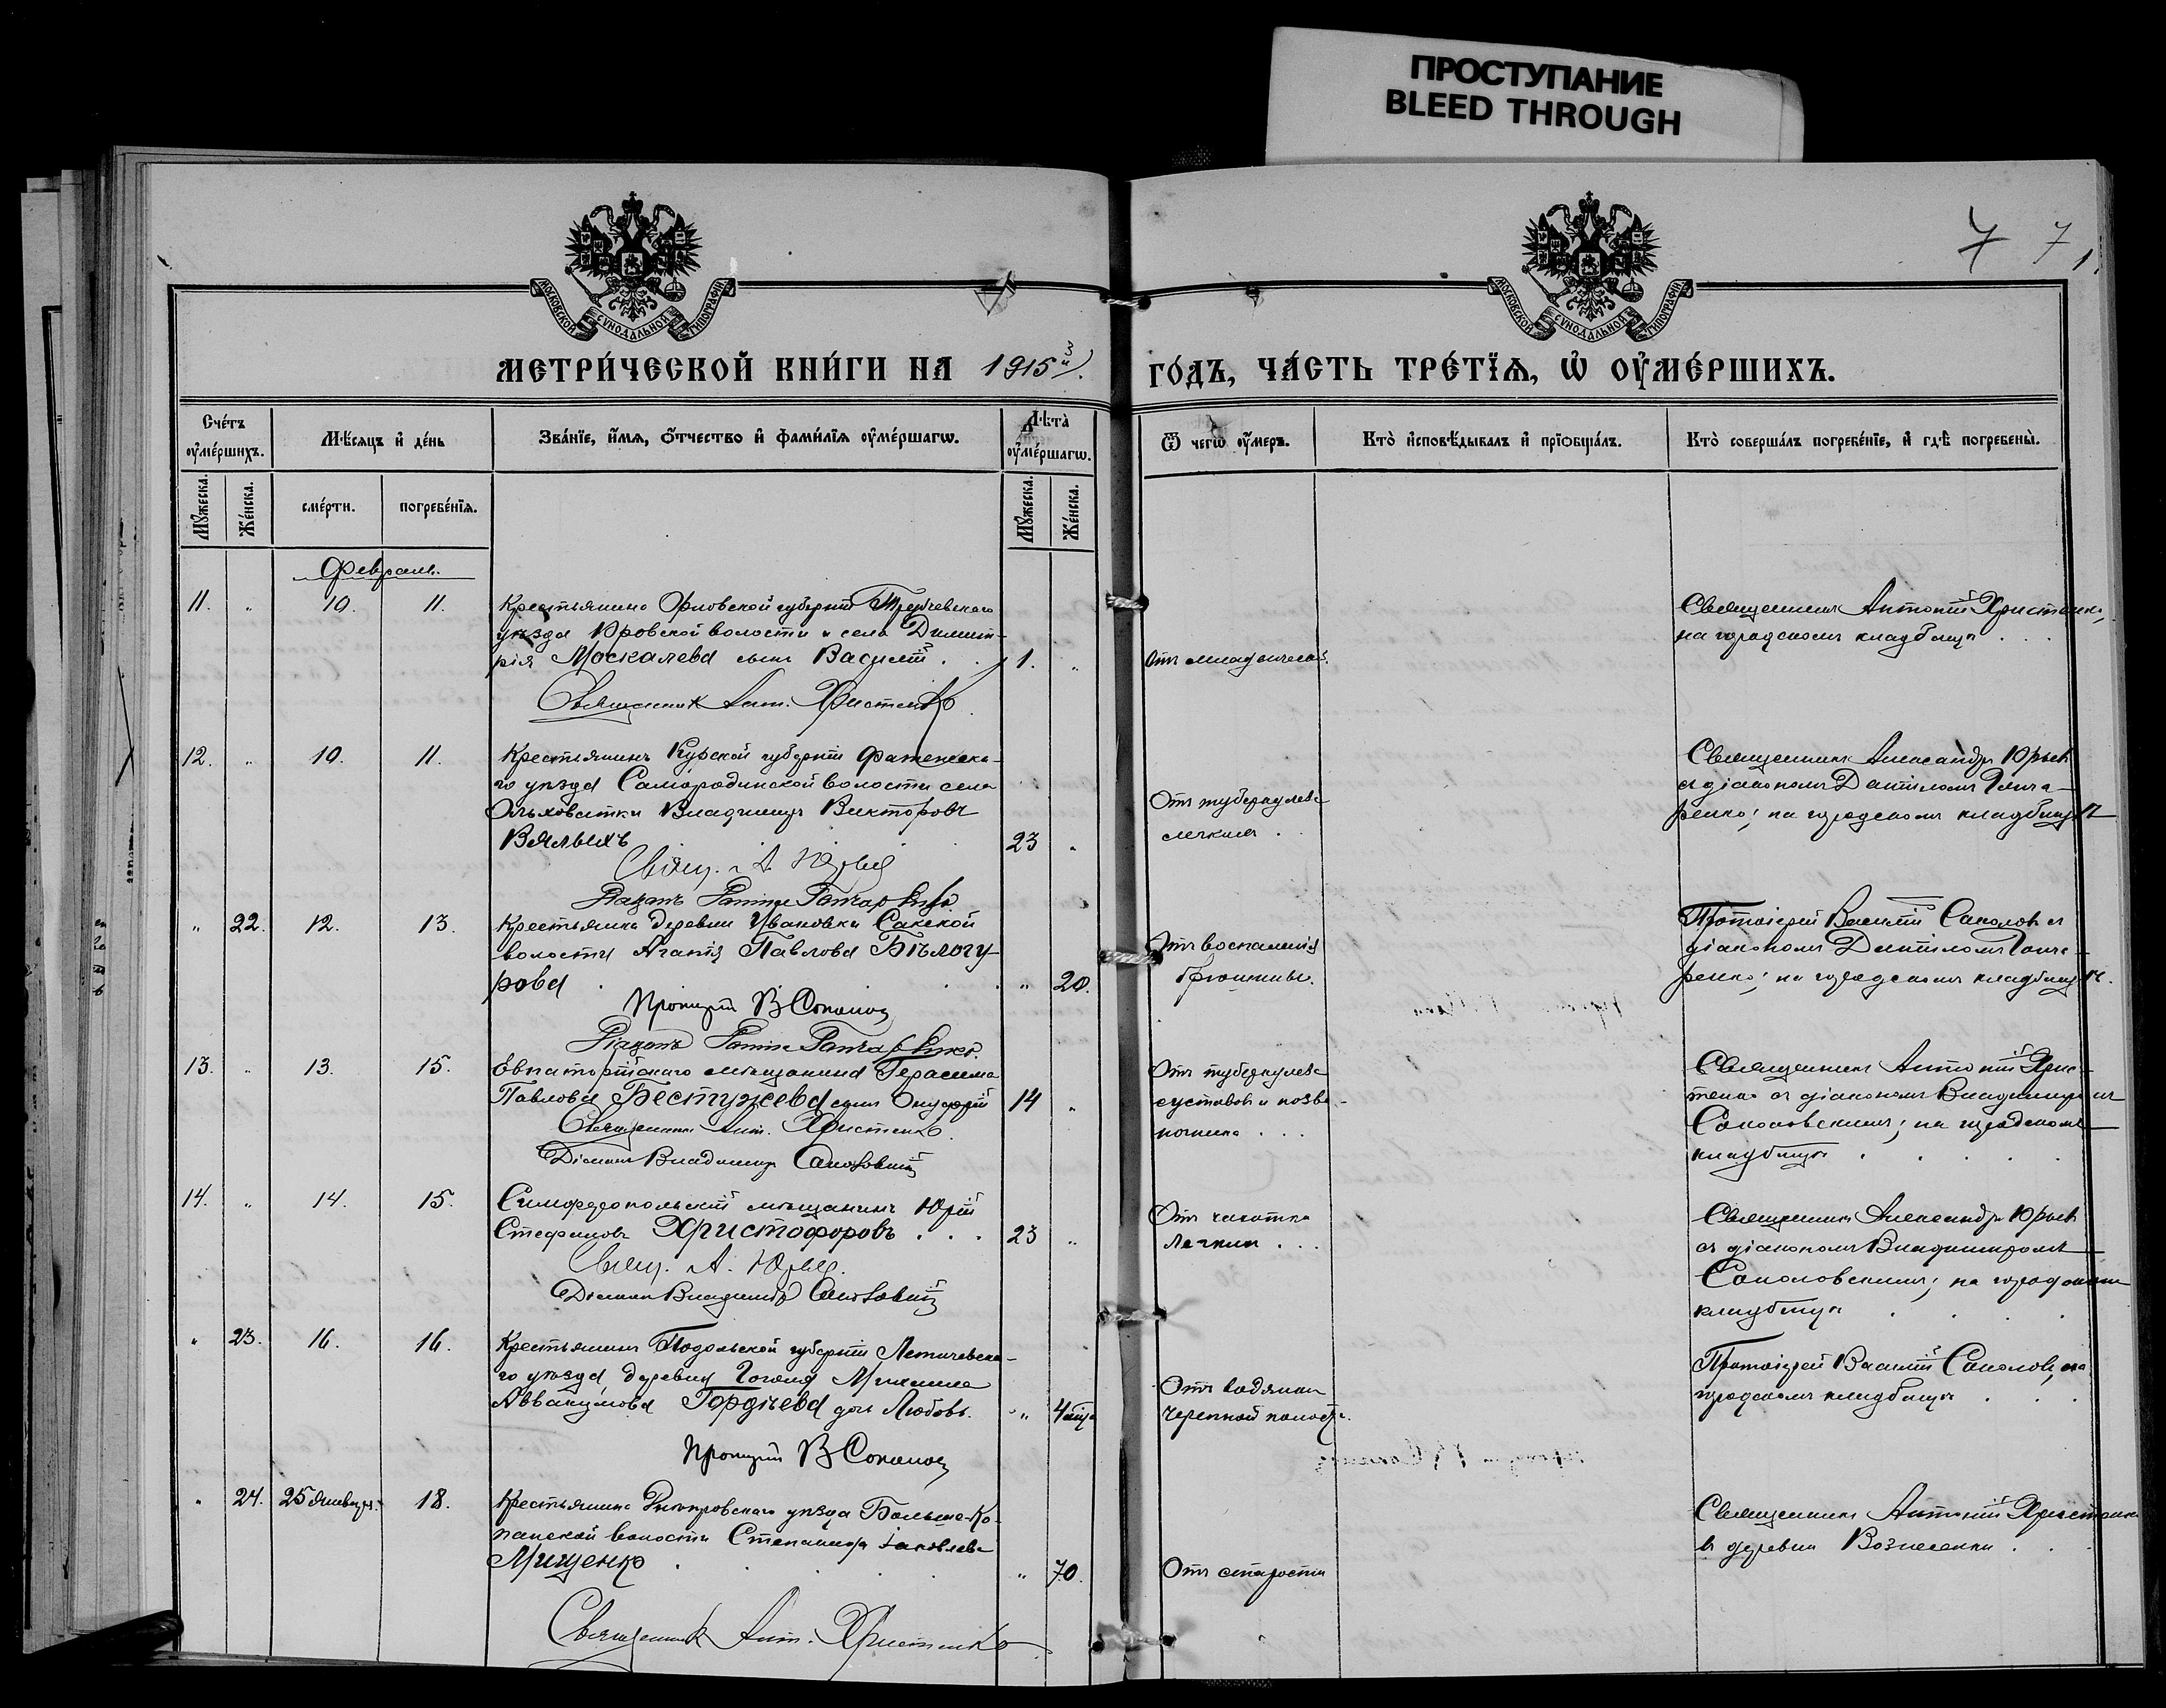 ПРОСТУПАНИЕ
BLEED THROUGH
7 7
МОСКОВСКОЙ СУНОДАЛЬНОЙ ТИПОГРАФІИ
МОСКОВСКОЙ СУНОДАЛЬНОЙ ТИПОГРАФІИ
МЕТРИ́ЧЕСКОЙ КНИ́ГИ НА 1915й
ГО́ДЪ, ЧА́СТЬ ТРЕ́ТІѦ, Ѡ҆ ОУ҆МЕ́РШИХЪ.
Сче́тъ оу҆ме́ршихъ.
Мѣ́сяцъ и҆ де́нь
Зва́нїе, и҆́мя, ѻ҆́тчество и҆ фами́лїя оу҆ме́ршагѡ.
Лѣ́та оу҆ме́ршагѡ.
Ѿ чегѡ̀ оу҆́меръ.
Кто̀ и҆сповѣ́дывалъ и҆ прїѡбща́лъ.
Кто̀ соверша́лъ погребе́нїе, и҆ гдѣ̀ погребены̀.
Мꙋ́жеска.
Же́нска.
сме́рти.
погребе́нїя.
Мꙋ́жеска.
Же́нска.
Февраль.
11. " 10. 11. Крестьянина Орловской губерніи Трубчевскаго
уѣзда волости и села Димит-
рія Москалева сынъ Василій . . 1. "
Священник Ант. Христенко
Отъ младенческой.
Священникъ Антоній Христенко,
на городскомъ кладбищѣ . . .
12. " 10. 11. Крестьянинъ Курской губерніи Фатежска-
го уѣзда Самородинской волости села
Ольховатки Владимиръ Викторовъ
Вялыхъ 23 "
Свящ. А. Юрьев
Діаконъ Гончаренко
Отъ туберкулеза
легкихъ .
Священникъ Александръ Юрьевъ
съ діакономъ Даніиломъ Гонча-
ренко; на городскомъ кладбищѣ
" 22. 12. 13. Крестьянка деревни Ивановки Сакской
волости Агапія Павлова Бѣлогу-
рова . . . " 20.
Протоіерей В Соколов
Діаконъ Гончаренко.
Отъ воспаленія
брюшины.
Протоіерей Василій Соколовъ съ
діакономъ Даніиломъ Гонча-
ренко; на городскомъ кладбищѣ.
13. " 13. 15. Евпаторійскаго мѣщанина Герасима
Павлова Бестужева сынъ Онуфрій 14 "
Священник Ант. Христенко.
Діаконъ Владимир Соколовскій
Отъ туберкулеза
суставовъ и позво-
ночника . . .
Священникъ Антоній Хрис-
тенко съ діакономъ Владимиромъ
Соколовскимъ; на городскомъ
кладбищѣ . . . .
14. " 14. 15. Симферопольскій мѣщанинъ Юрій
Стефановъ Христофоровъ . . . 23 "
Свящ. А. Юрьев.
Діаконъ Владимир Соколовскій
Отъ чахотки
легкихъ . . .
Священникъ Александръ Юрьевъ
съ діакономъ Владимиромъ
Соколовскимъ; на городскомъ
кладбищѣ . . .
" 23. 16. 16. Крестьянина Подольской губерніи Летичевска-
го уѣзда деревни Гоголя Михаила
Аввакумова Гордѣева дочь Любовь. " 4 мѣс.
Протоіерей В Соколов
Отъ водянки
черепной полости.
Протоіерей Василій Соколовъ, на
городскомъ кладбищѣ . . .
" 24. 25 Января. 18. Крестьянка Днѣпровскаго уѣзда Больше-Ко-
панской волости Степанида Іаковлева
Мищенко . . . " 70.
Священник Ант. Христенко
Отъ старости
Священникъ Антоній Христенко
въ деревнѣ Вознесенки . . .